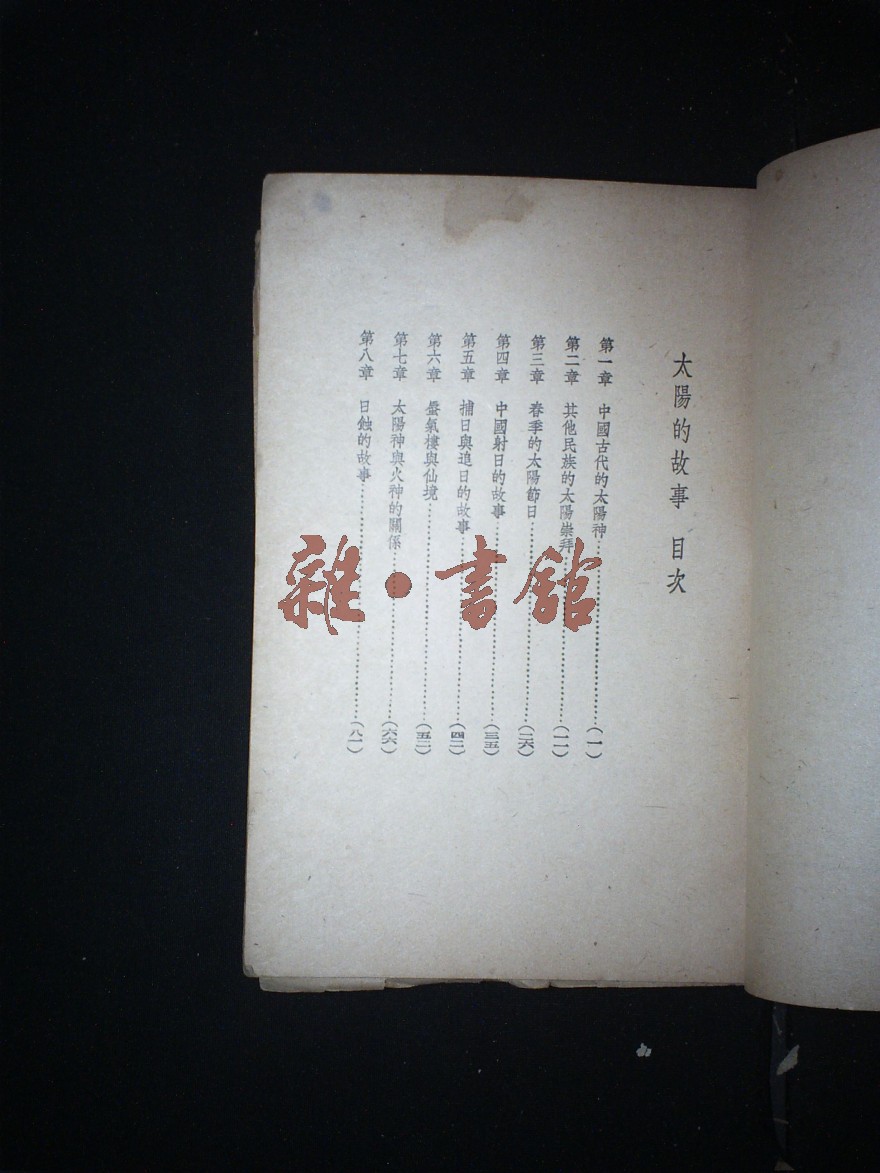 太陽的故事 目次
第一章 中國古代的太陽神……(一)
第二章 其他民族的太陽崇拜……(一一)
第三章 春季的太陽節日……(二六)
第四章 中國射日的故事……(三五)
第五章 捕日與追日的故事……(四二)
第六章 蜃氣樓與仙境……(五二)
第七章 太陽神與火神的關係……(六六)
第八章 日蝕的故事……(八一)
雜·書館